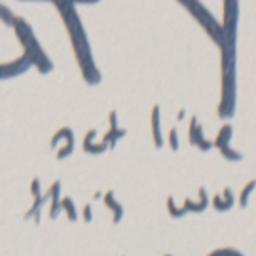 act like
this wor